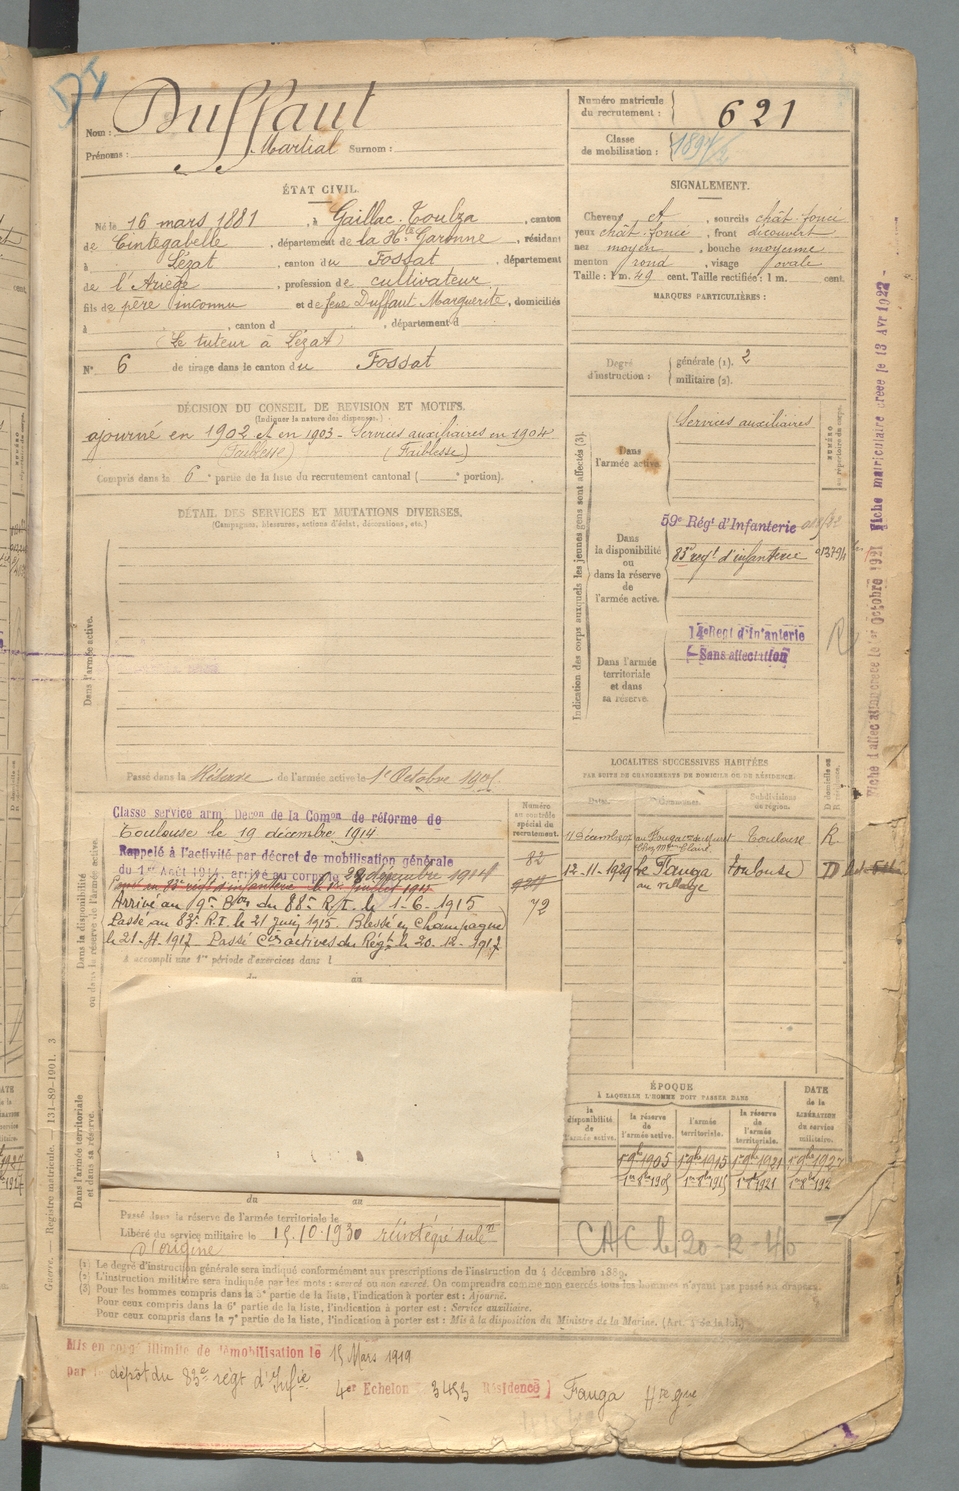 Nom : Duffaut
Prénoms : Martial Surnom :
Numéro matricule
du recrutement : 621
Classe
de mobilisation :
ÉTAT CIVIL.
Né le 16 mars 1881, à Gaillac-Toulza, canton
de Cintegabelle, département de la Hte Garonne, résidant
à Lézat, canton du Fossat, département
de l'Ariège, profession de cultivateur
fils de père inconnu et de feue Duffaut Marguerite, domiciliés
à , canton d , département d
(Le tuteur à Lézat)
N° 6 de tirage dans le canton du Fossat
SIGNALEMENT.
Cheveux et , sourcils chât. foncé
yeux chât. foncé, front découvert
nez moyen, bouche moyenne
menton rond, visage ovale
Taille : 1 m. 49 cent. Taille rectifiée : 1 m. cent.
MARQUES PARTICULIÈRES :
Degré
d'instruction :
générale (1). 2
militaire (2).
DÉCISION DU CONSEIL DE REVISION ET MOTIFS.
(Indiquer la nature des dispenses.)
ajourné en 1902 et en 1903 - Services auxiliaires en 1904
(Faiblesse) (Faiblesse)
Compris dans la 6e partie de la liste du recrutement cantonal ( e portion).
DÉTAIL DES SERVICES ET MUTATIONS DIVERSES.
(Campagnes, blessures, actions d'éclat, décorations, etc.)
Dans l'armée active.
Passé dans la Réserve de l'armée active le 1er Octobre 1905.
Indication des corps auxquels les jeunes gens sont affectés (3).
Dans
l'armée active.
Services auxiliaires
Dans
la disponibilité
ou
dans la réserve
de
l'armée active.
59e Régt d'Infanterie
83e régt d'infanterie
Dans l'armée
territoriale
et dans
sa réserve.
14e Regt d'Infanterie
Sans affectation
NUMÉRO
au répertoire du corps.
R
Fiche d'affectation créée le 1er Octobre 1921 Fiche matriculaire créée le 13 Avr 1922
LOCALITÉS SUCCESSIVES HABITÉES
PAR SUITE DE CHANGEMENTS DE DOMICILE OU DE RÉSIDENCE.
Dates. Communes. Subdivisions
de région.
D domicile ou
R résidence.
Toulouse R
12-11-1929 Le Fauga Toulouse D
au village
Dans la disponibilité
ou dans la réserve de l'armée active.
Numéro
au contrôle
spécial du
recrutement.
82
72
Classé service armé Décon de la Comon de réforme de
Toulouse le 19 décembre 1914
Rappelé à l'activité par décret de mobilisation générale
du 1er Août 1914, arrivé au corps le 28 décembre 1914
Arrivé au 19e Bon du 88e R.I. le 1-6-1915
Passé au 83e R.I. le 21 juin 1915. Blessé en Champagne
le 21-11-1917 Passé Cies actives du Régt le 20-12-1917
A accompli une 1re période d'exercices dans l
du au
Dans l'armée territoriale
et dans sa réserve.
ÉPOQUE
À LAQUELLE L'HOMME DOIT PASSER DANS
la
disponibilité
de
l'armée active.
la réserve
de
l'armée active.
l'armée
territoriale.
la réserve
de
l'armée
territoriale.
DATE
de la
LIBÉRATION
du service
militaire.
1er 9bre 1905 1er 9bre 1915 1er 9bre 1921 1er 9bre 1927
1er 8bre 1905 1er 8bre 1915 1er 8bre 1921 1er 8bre 192
du au
Passé dans la réserve de l'armée territoriale le
Libéré du service militaire le 15.10.1930 réintégré subon
d'origine
CAC le 20-2-40
Guerre. — Registre matricule. — 131-89-1901. 3
(1) Le degré d'instruction générale sera indiqué conformément aux prescriptions de l'instruction du 4 décembre 1889.
(2) L'instruction militaire sera indiquée par les mots : exercé ou non exercé. On comprendra comme non exercés tous les hommes n'ayant pas passé en drapeau.
(3) Pour les hommes compris dans la 5e partie de la liste, l'indication à porter est : Ajourné.
Pour ceux compris dans la 6e partie de la liste, l'indication à porter est : Service auxiliaire.
Pour ceux compris dans la 7e partie de la liste, l'indication à porter est : Mis à la disposition du Ministre de la Marine. (Art. 4 de la loi.)
Mis en congé illimité de démobilisation le 15 Mars 1919
par le dépôt du 83e régt d'Infie
4er Echelon 3453 Résidence) Fauga Hte gne